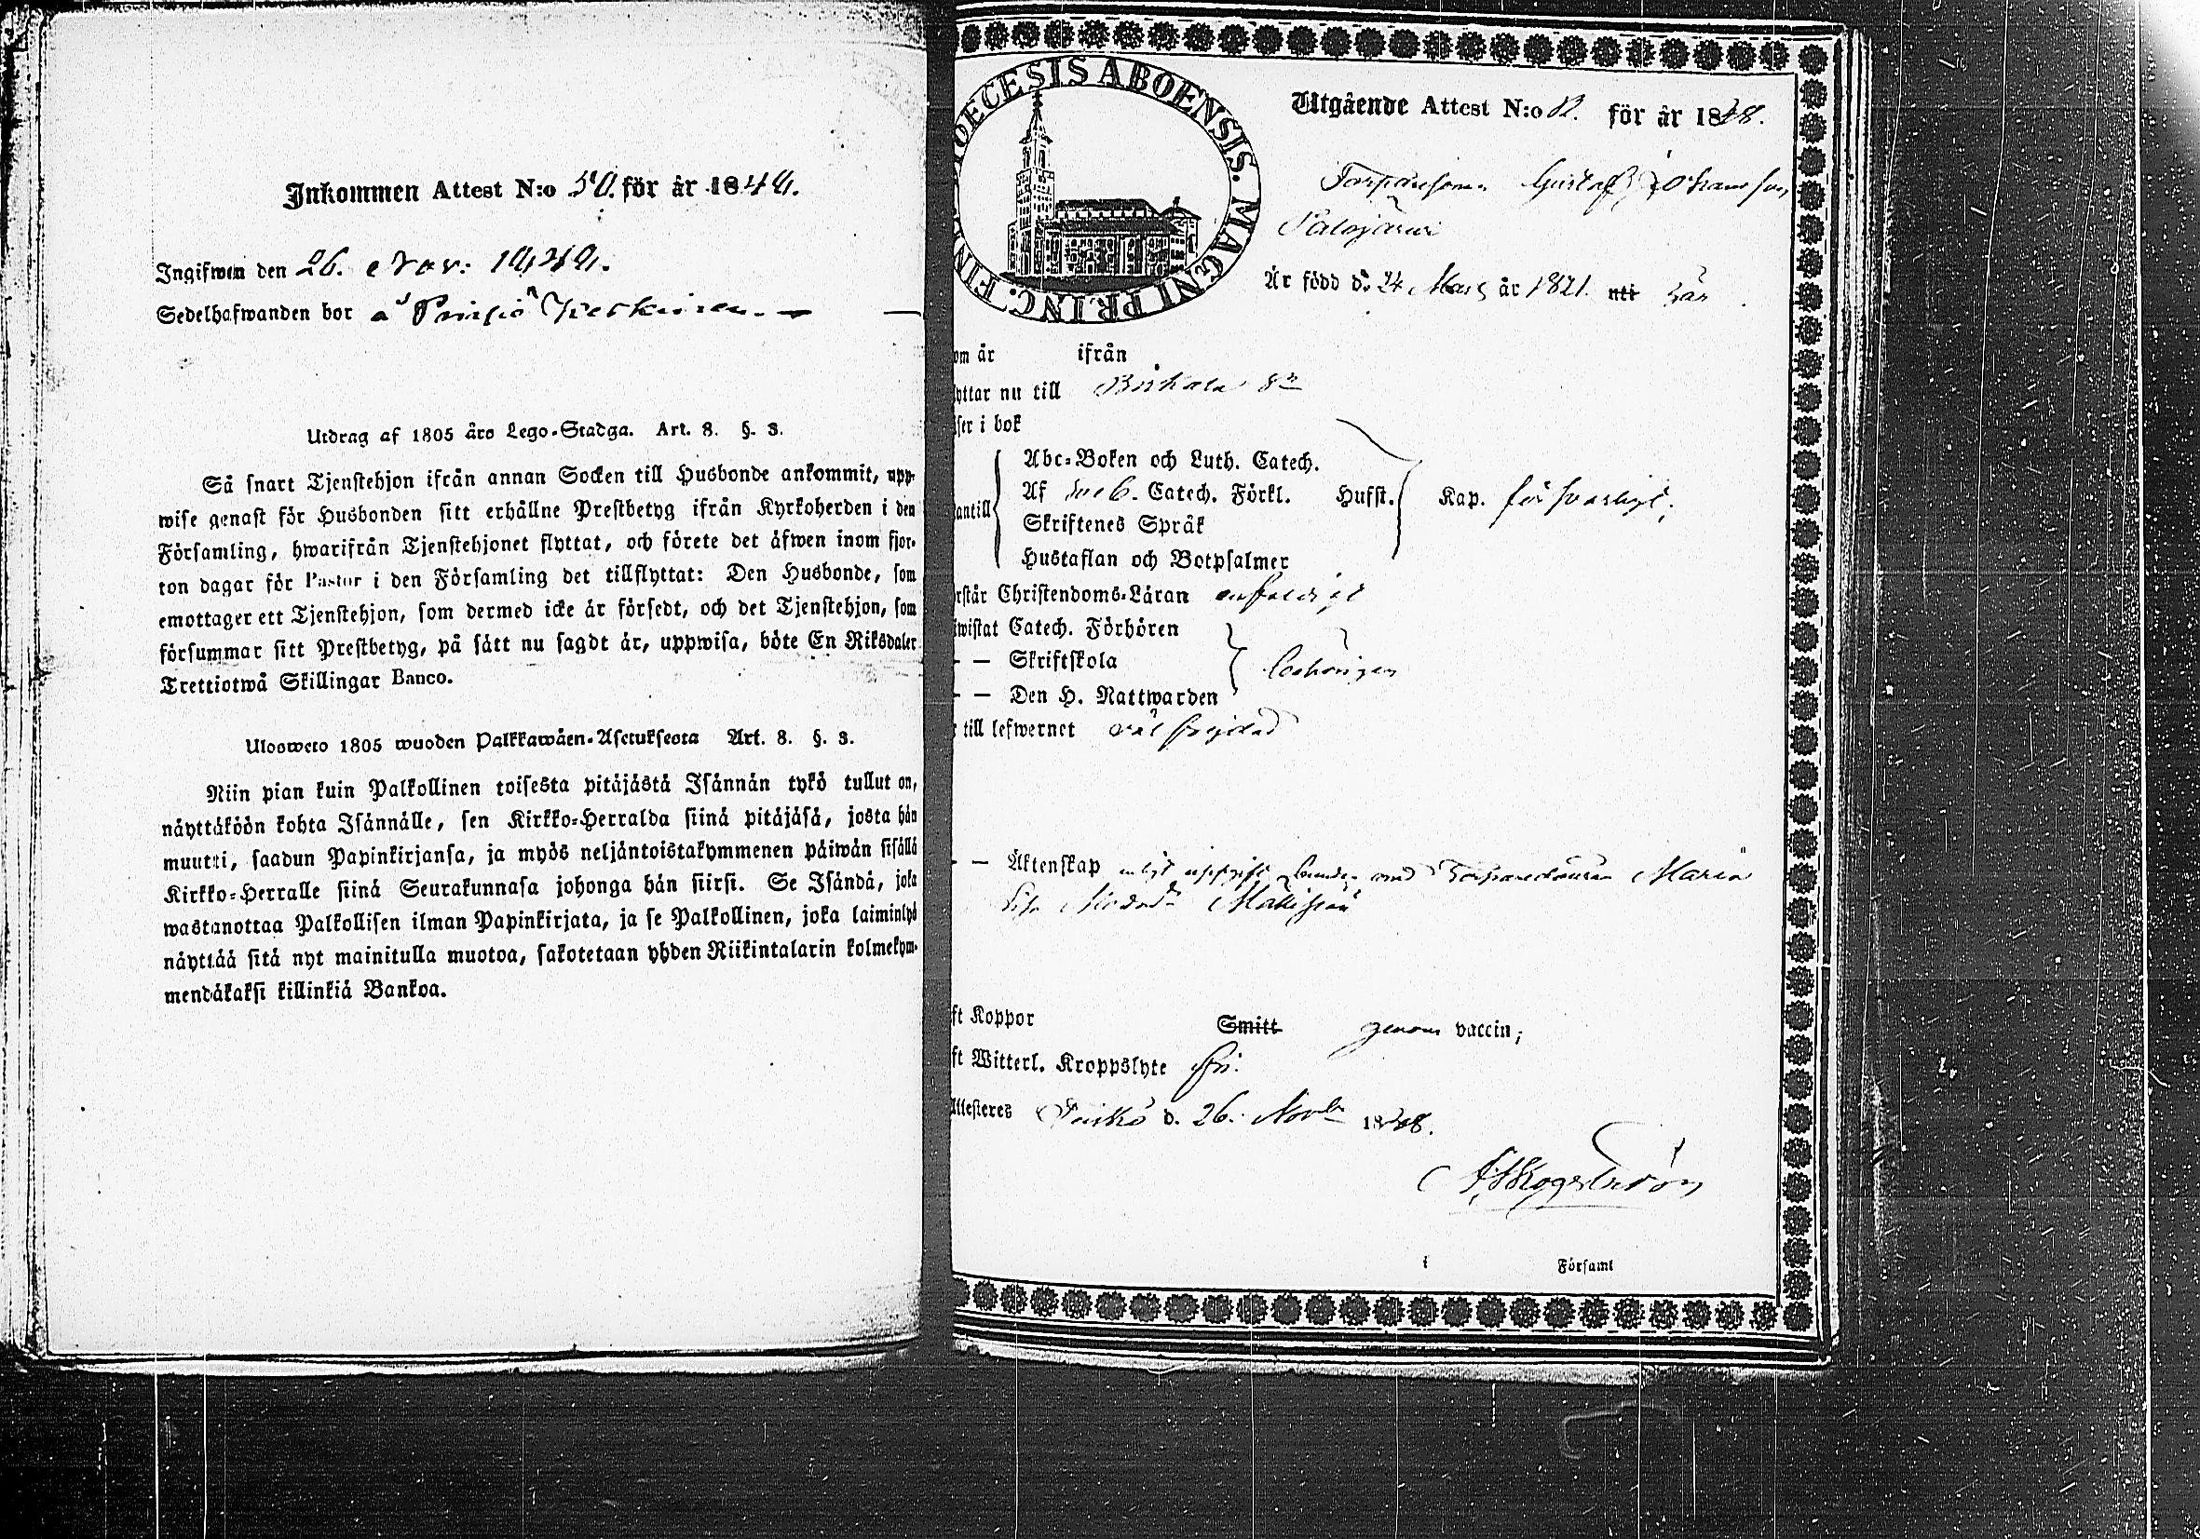 Inkommen Attest N:o 50. för år 1848.
Ingifwen den 26. Nov: 1848.
Sedelhafwanden bor å
Utdrag af 1805 års Lego-Stadga. Art. 8. §. 3.
Så snart Tjenstehjon ifrån annan Socken till Husbonde ankommit, upp-
wise genast för Husbonden sitt erhållne Prestbetyg ifrån Kyrkoherden i den
Församling, hwarifrån Tjenstehjonet flyttat, och förete det äfwen inom fjor-
ton dagar för Pastor i den Församling det tillflyttat: Den Husbonde, som
emottager ett Tjenstehjon, som dermed icke är försedt, och det Tjenstehjon, som
försummar sitt Prestbetyg, på sätt nu sagdt är, uppwisa, böte En Riksdaler
Trettiotwå Skillingar Banco.
Ulosweto 1805 wuoden Palkkawäen-Asetuksesta Art. 8. §. 3.
Niin pian kuin Palkollinen toisesta pitäjästä Isännän tykö tullut on,
näyttäköön kohta Isännälle, sen Kirkko-Herralda siinä pitäjäsä, josta hän
muutti, saadun Papinkirjansa, ja myös neljäntoistakymmenen päiwän sisällä
Kirkko-Herralle siinä Seurakunnasa johonga hän siirsi. Se Isändä, joka
wastanottaa Palkollisen ilman Papinkirjata, ja se Palkollinen, joka laiminlyö
näyttää sitä nyt mainitulla muotoa, sakotetaan yhden Riikintalarin kolmekym-
mendäkaksi killinkiä Bankoa.
DIOECESIS ABOENSIS. MAGNI PRINC. FIN
Utgående Attest N:o 12. för år 1848.
Torparesonen Gustaf Johansson
Är född d. 24 Mars år 1821. uti här
om år ifrån
yttar nu till Birkala Sn
ser i bok
antill
Abc-Boken och Luth. Catech.
Af Sveb. Catech. Förkl. Husst. Kap. försvarligt;
Skriftenes Språk
Hustaflan och Botpsalmer
rstår Christendoms-Läran enfaldigt
iwistat Catech. Förhören
- - Skriftskola behörigen
- - Den H. Nattwarden
till lefwernet väl frejdad
- - Äktenskap enligt uppgift bunden med Torparedottren Maria
ft Koppor Smitt genom vaccin;
ft Witterl. Kroppslyte fri.
Attesteres d. 26. Novbr 1848.
i Församl